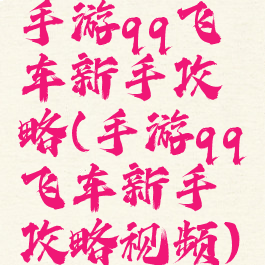 手游qq飞
车新手攻
略(手游qq
飞车新手
攻略视频)